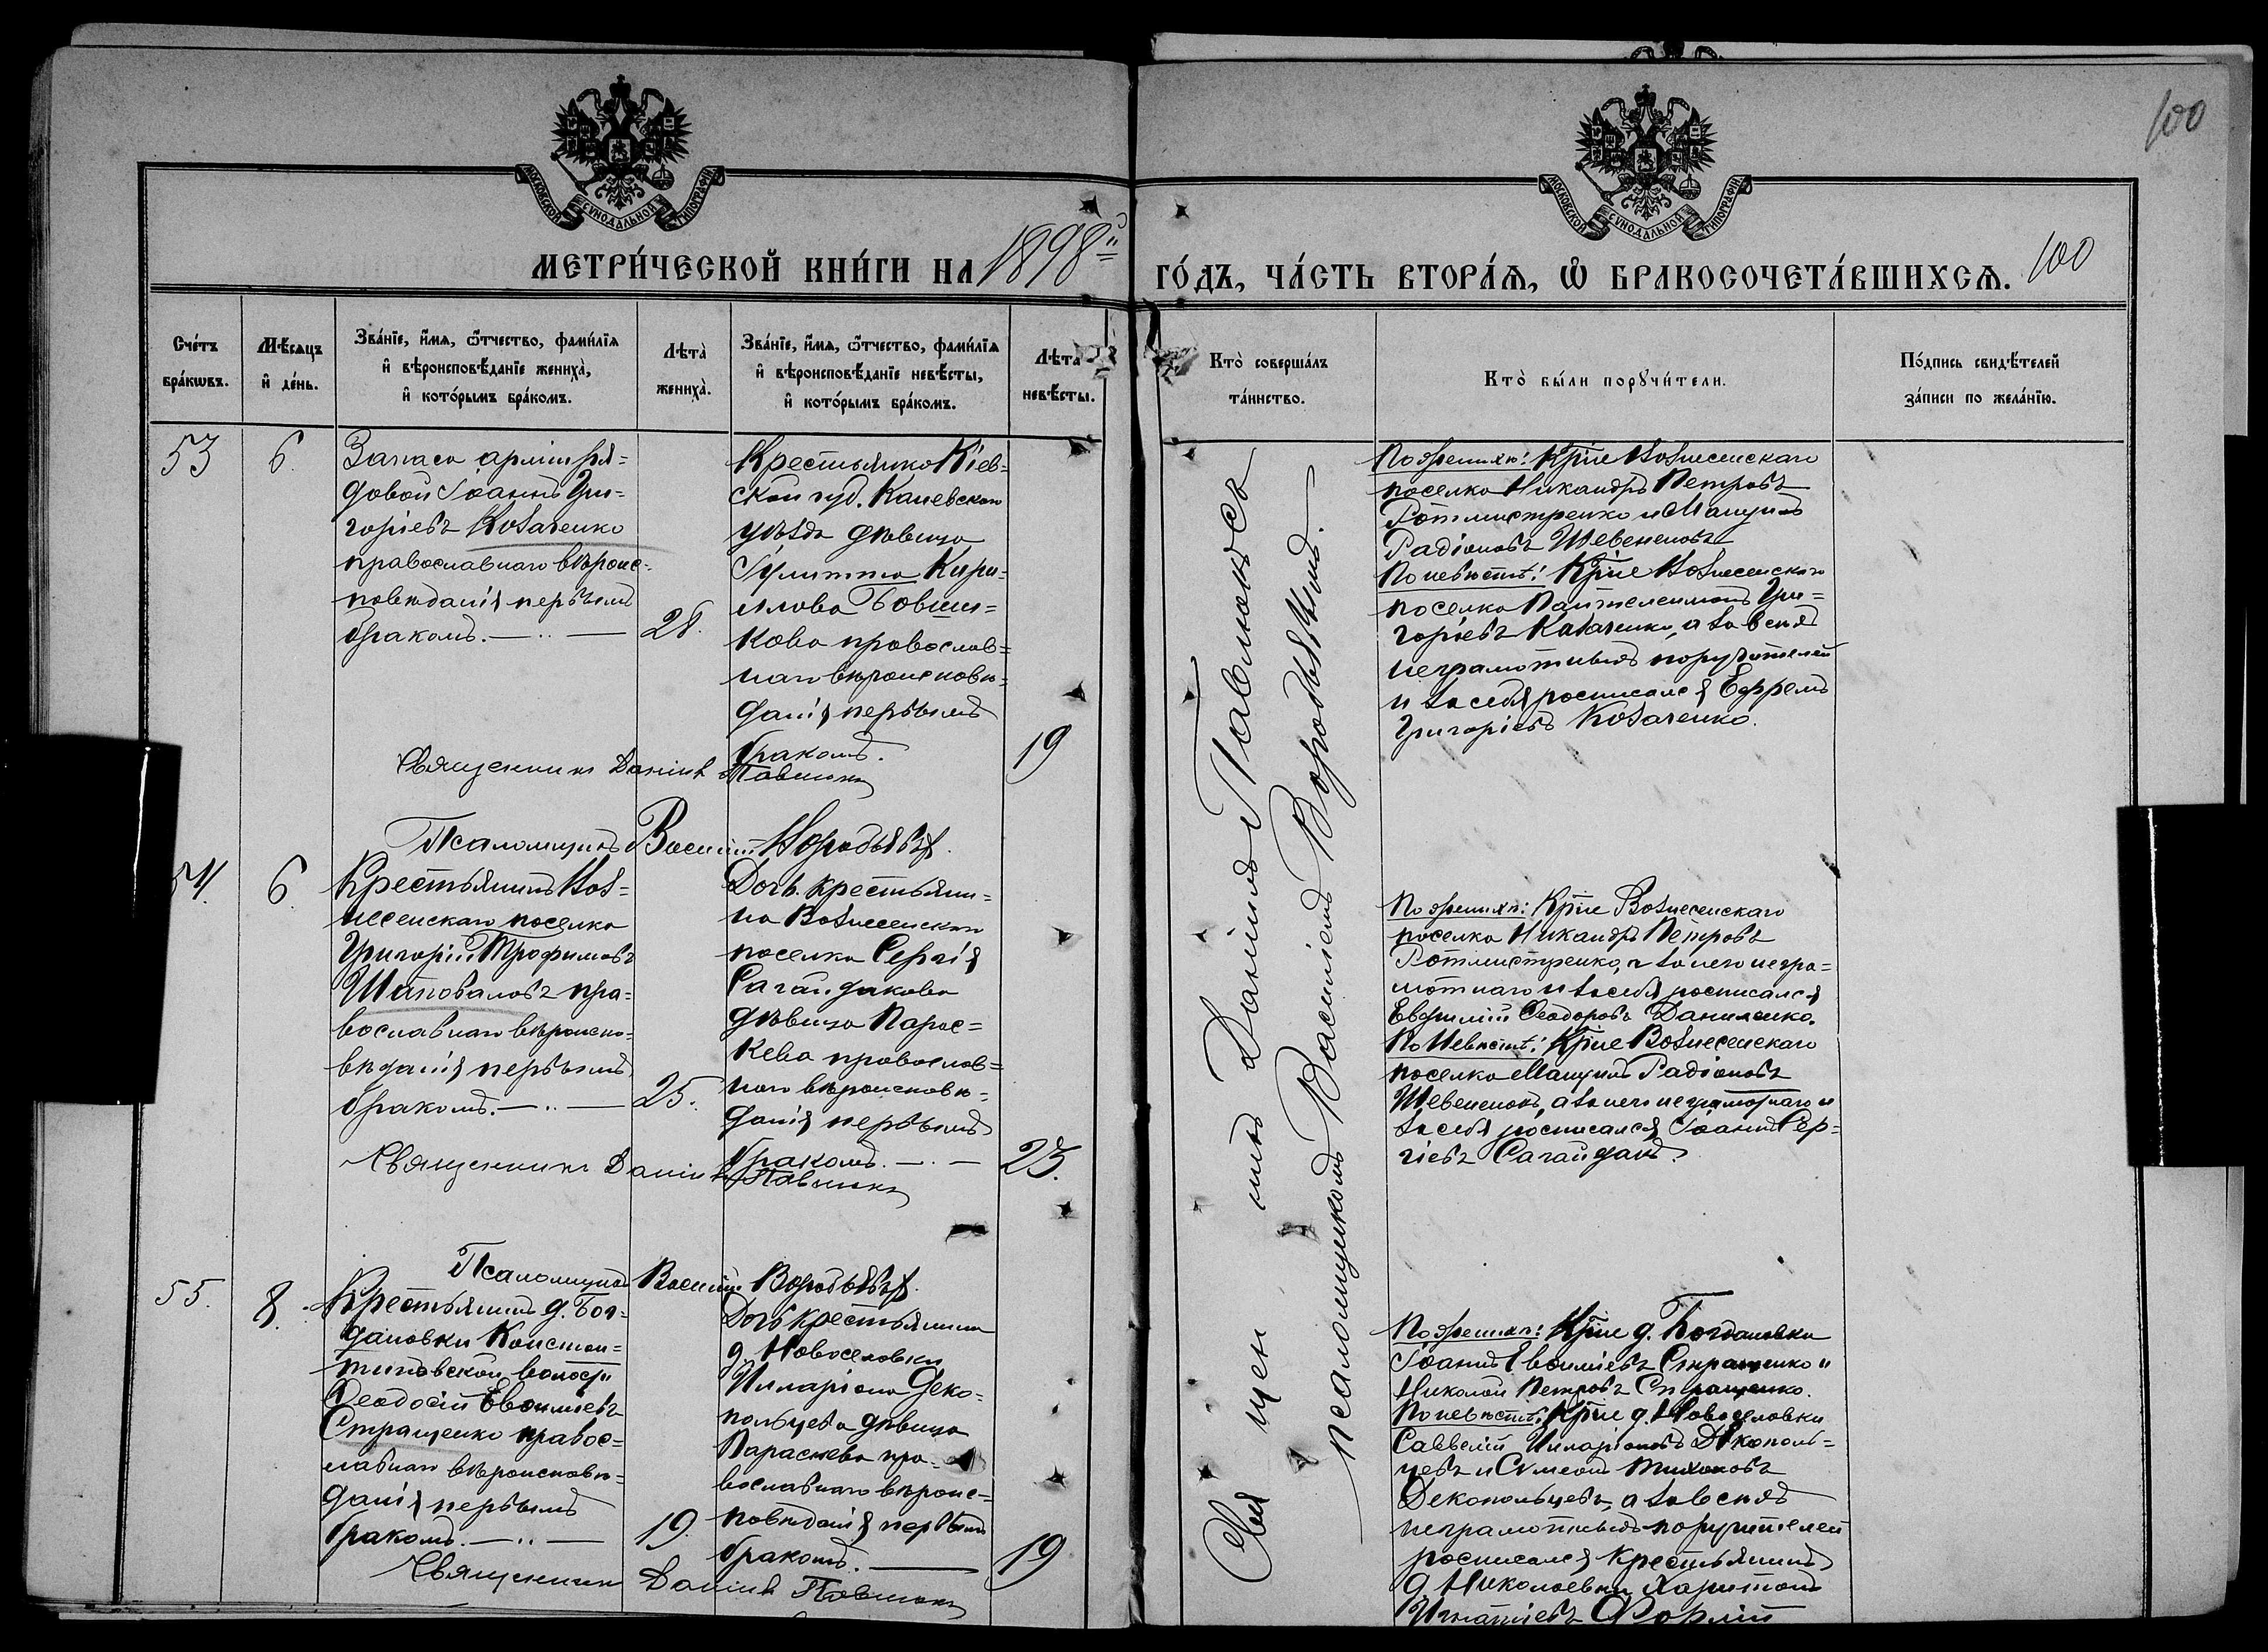 100
МОСКОВСКОЙ СѴНОДАЛЬНОЙ ТИПОГРАФІИ.
МОСКОВСКОЙ СѴНОДАЛЬНОЙ ТИПОГРАФІИ.
МЕТРИ́ЧЕСКОЙ КНИ́ГИ НА 1898й
ГО́ДЪ, ЧА́СТЬ ВТОРА́Ѧ, Ѡ҆ БРАКОСОЧЕТА́ВШИХСѦ. 100
Сче́тъ бра́кѡвъ.
Мѣ́сѧцъ и҆ де́нь.
Зва́нїе, и҆́мѧ, ѻ҆́тчество, фами́лїѧ и҆ вѣроисповѣ́данїе жениха̀, и҆ кото́рымъ бра́комъ.
Лѣта̀ жениха̀.
Зва́нїе, и҆́мѧ, ѻ҆́тчество, фами́лїѧ и҆ вѣроисповѣ́данїе невѣ́сты, и҆ кото́рымъ бра́комъ.
Лѣта̀ невѣ́сты.
Кто̀ соверша́лъ та́инство.
Кто̀ бы́ли порꙋчи́тели.
По́дпись свидѣ́телей за́писи по жела́нїю.
53
6.
Запаса арміи ря=
довой Іоаннъ Гри=
горіевъ Козаченко
православнаго вѣроис=
повѣданія первымъ
бракомъ.
28.
Крестьянка Кіев=
ской губ. Каневскаго
уѣзда дѣвица
Іулитта Кири=
лова
православ=
наго вѣроисповѣ=
данія первымъ
бракомъ.
19
Священникъ Даніилъ Павлюкъ
Псаломщикъ Василій Воробьевъ.
По женихѣ: Крне Вознесенскаго
поселка Никандръ Петровъ
Ротмистренко и
Радіоновъ
По невѣстѣ: Крне Вознесенскаго
поселка Пантелеимонъ Гри=
горіевъ Казаченко, а за всѣхъ
неграмотныхъ поручителей
и за себя росписался Ефремъ
Григоріевъ Козаченко.
Священникъ Даніилъ Павлюкъ съ
псаломщикомъ Василіемъ Воробьевымъ.
54.
6.
Крестьянинъ Воз=
несенскаго поселка
Григорій Трофимовъ
Шаповаловъ пра=
вославнаго вѣроиспо=
вѣданія первымъ
бракомъ.
25.
Дочь крестьяни=
на Вознесенскаго
поселка Сергія
Сагайдакова
дѣвица Парас=
кева православ=
наго вѣроисповѣ=
данія первымъ
бракомъ.
23.
Священникъ Даніилъ Павлюкъ
Псаломщикъ Василій Воробьевъ.
По женихѣ: Крне Вознесенскаго
поселка Никандръ Петровъ
Ротмистренко, а за него негра=
мотнаго и за себя росписался
Евфимій Феодоровъ Даниленко.
По Невѣстѣ: Крне Вознесенскаго
поселка Радіоновъ
а за него неграмотнаго и
за себя росписался Іоаннъ Сер=
гіевъ Сагайдакъ.
55.
8.
Крестьянинъ д. Бог=
дановки Констан=
тиновской волости
Феодосій Евфиміевъ
Стращенко правос=
лавнаго вѣроисповѣ=
данія первымъ
бракомъ.
19.
Дочь крестьянина
д. Новоселовки
Иларіона Деко=
польцева дѣвица
Параскева пра=
вославнаго вѣроис=
повѣданія первымъ
бракомъ.
19
Священникъ Даніилъ Павлюкъ
По женихѣ: Крне д. Богдановки
Іоаннъ Евфиміевъ Стращенко и
Николай Петровъ Стращенко.
По невѣстѣ: Крне д. Новоселовки
Савелій Иларіоновъ Декополь=
цевъ и Сумеонъ Тихоновъ
Декопольцевъ, а за всѣхъ
неграмотныхъ поручителей
росписался крестьянинъ
д. Николаевки Харитонъ
Игнатіевъ